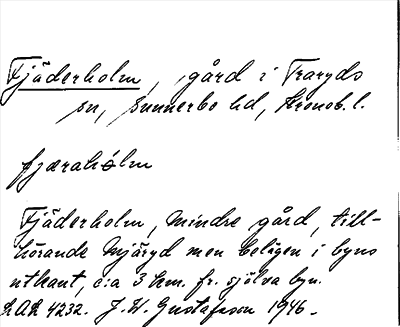 Fjäderholm, gård i Traryds
sn, Sunnerbo hd, Kronob. l.
fjæraholm
Fjäderholm, mindre gård, till-
hörande Mjäryd men belägen i byns
utkant, c:a 3 km. fr. själva byn.
4232. J. W. Gustafsson 1946.